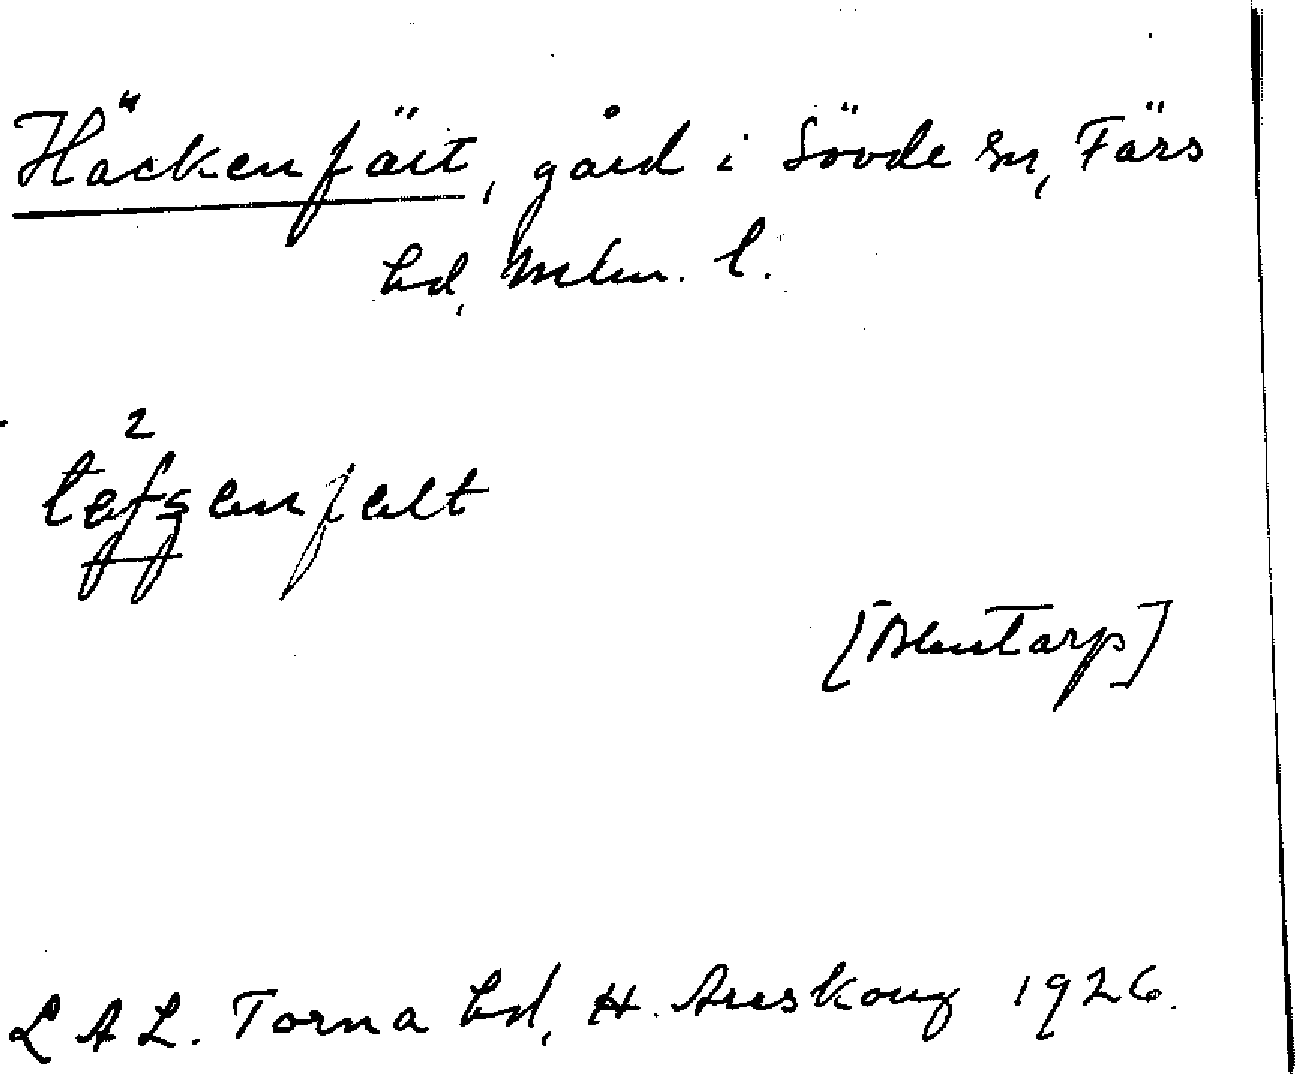 Häckenfält, gård i Sövde sn, Färs
hd, Mlm. l.
2
[Blentarp]
L A L. Torna hd, H. Areskoug 1926.